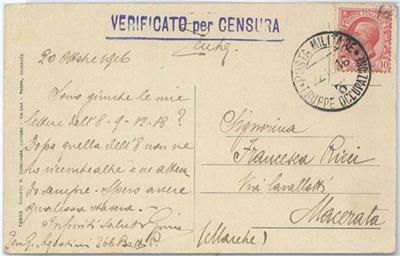 VERIFICATO per CENSURA
20 Ottobre 1916
POSTA MILITARE
TRUPPE OCCUPAZ
10
Sono giunte le mie
lettere dell'8-9-12-13?
Dopo quella dell'8 non ne
ho ricevute altre e ne atten
do sempre. Spero avere
qualcosa
Infiniti saluti Gino
Ten G. Agostini 366 Batt. P.
Signorina
Francesca Ricci
Via Cavallotti
Macerata
(Marche)